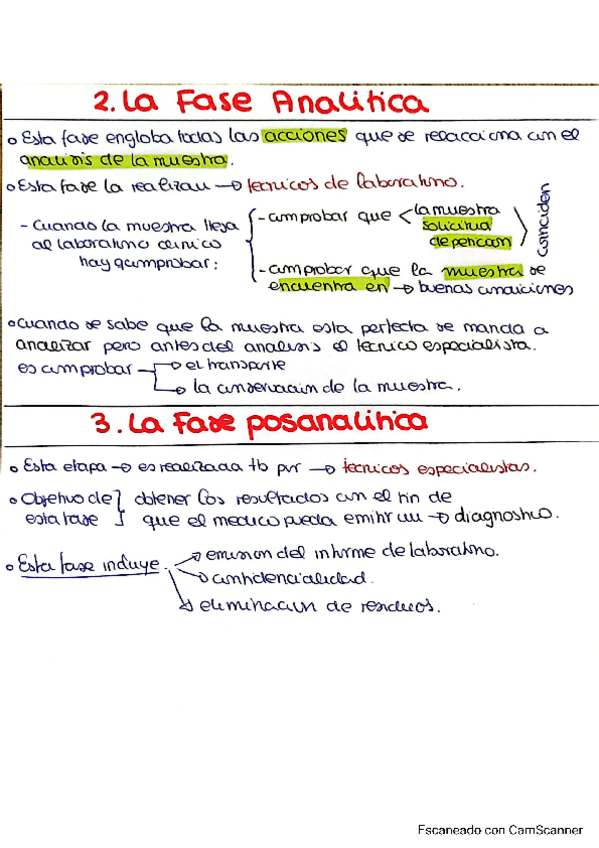 2. La Fase Analitica
o Esta fase engloba todas las acciones que se relacciona con el
analisis de la muestra.
o Esta fase la realizan → tecnicos de laboratorio.
- Cuando la muestra llega
al laboratorio clinico
hay q comprobar:
- comprobar que < la muestra
solicitud
de peticion
coinciden
- comprobar que la muestra se
encuentra en → buenas condiciones
o Cuando se sabe que la muestra esta perfecta se manda a
analizar pero antes del analisis el tecnico especialista.
es comprobar → el transporte
→ la conservacion de la muestra.
3. La Fase posanalitica
o Esta etapa → es realizada tb por → tecnicos especialistas.
o Objetivo de } obtener los resultados con el fin de
esta fase } que el medico pueda emitir un → diagnostico.
o Esta fase incluye. → emision del informe de laboratorio.
→ confidencialidad.
→ eliminacion de residuos.
Escaneado con CamScanner